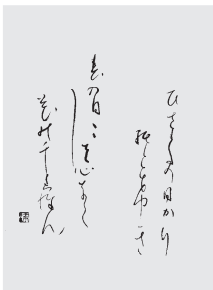 ひさかたの日かり
のとけき
春の日にし
つ心なく
花の千るらん